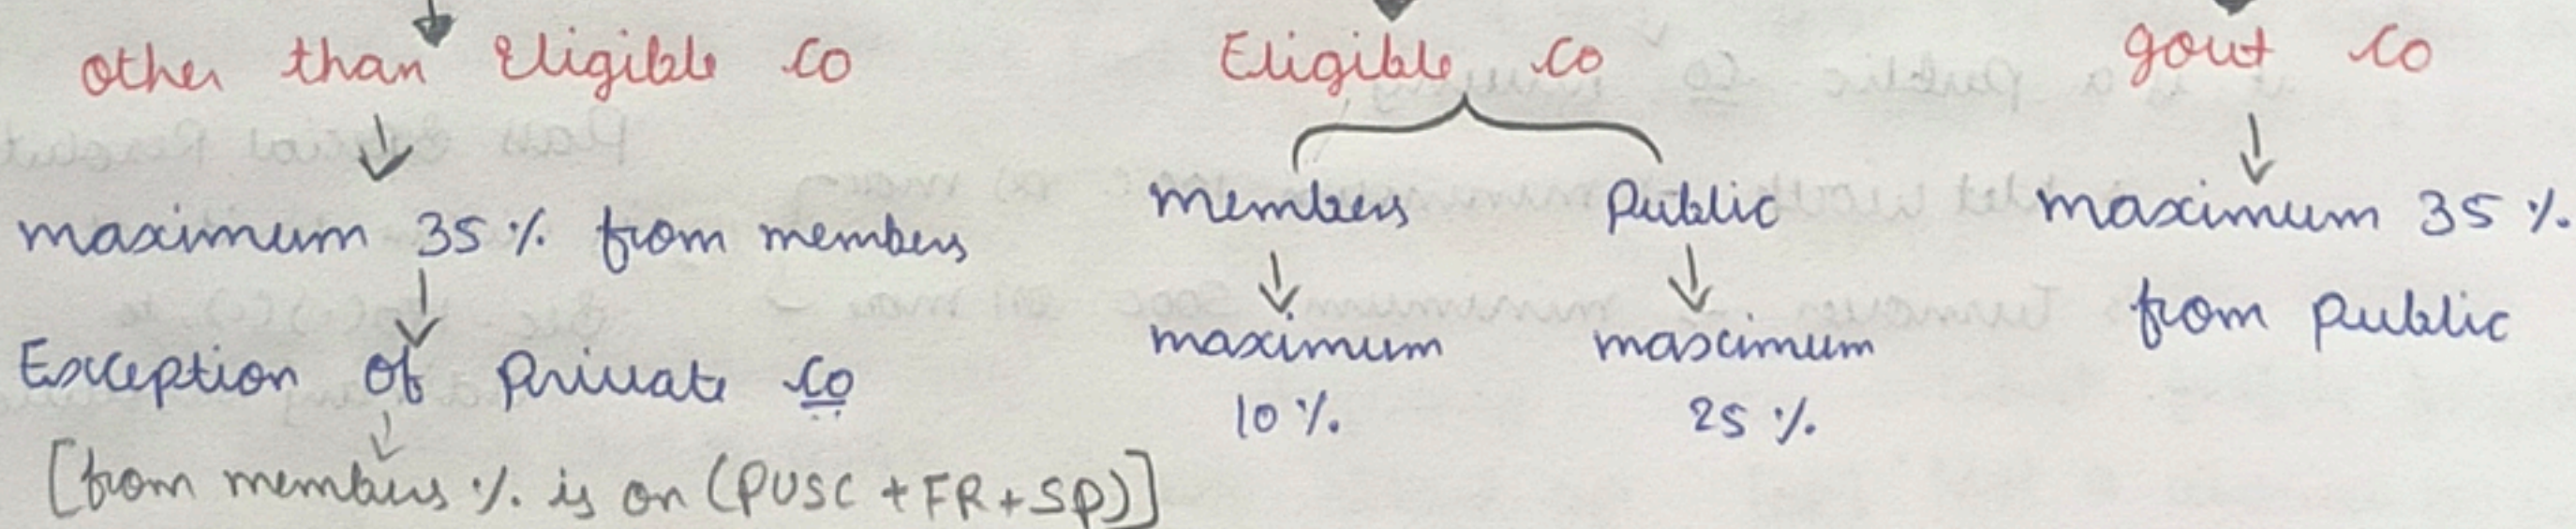 other than Eligible Co
maximum 35 % from members
Exception of Private Co
[from members % is on (PUSC + FR + SP)]
Eligible Co
members
maximum
10 %
Public
maximum
25 %
govt Co
maximum 35 %
from Public